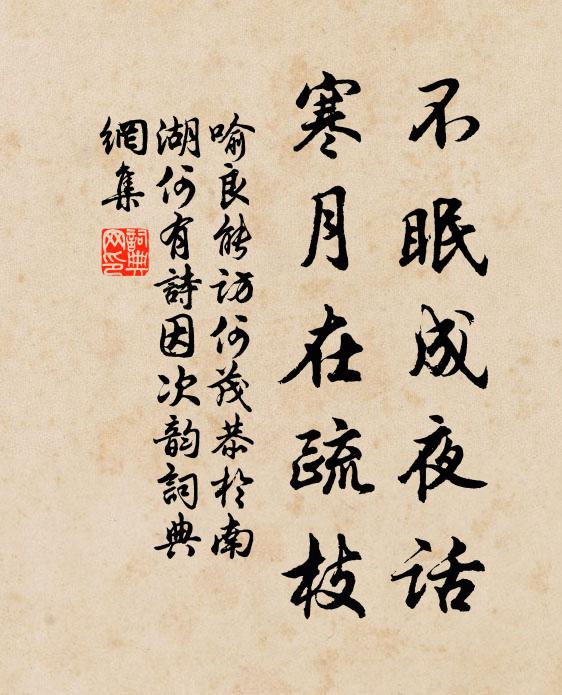 不眠成夜话
寒月在疏枝
喻良能访何茂恭於南
湖何有詩因次韵詞典
網集
詞典网印